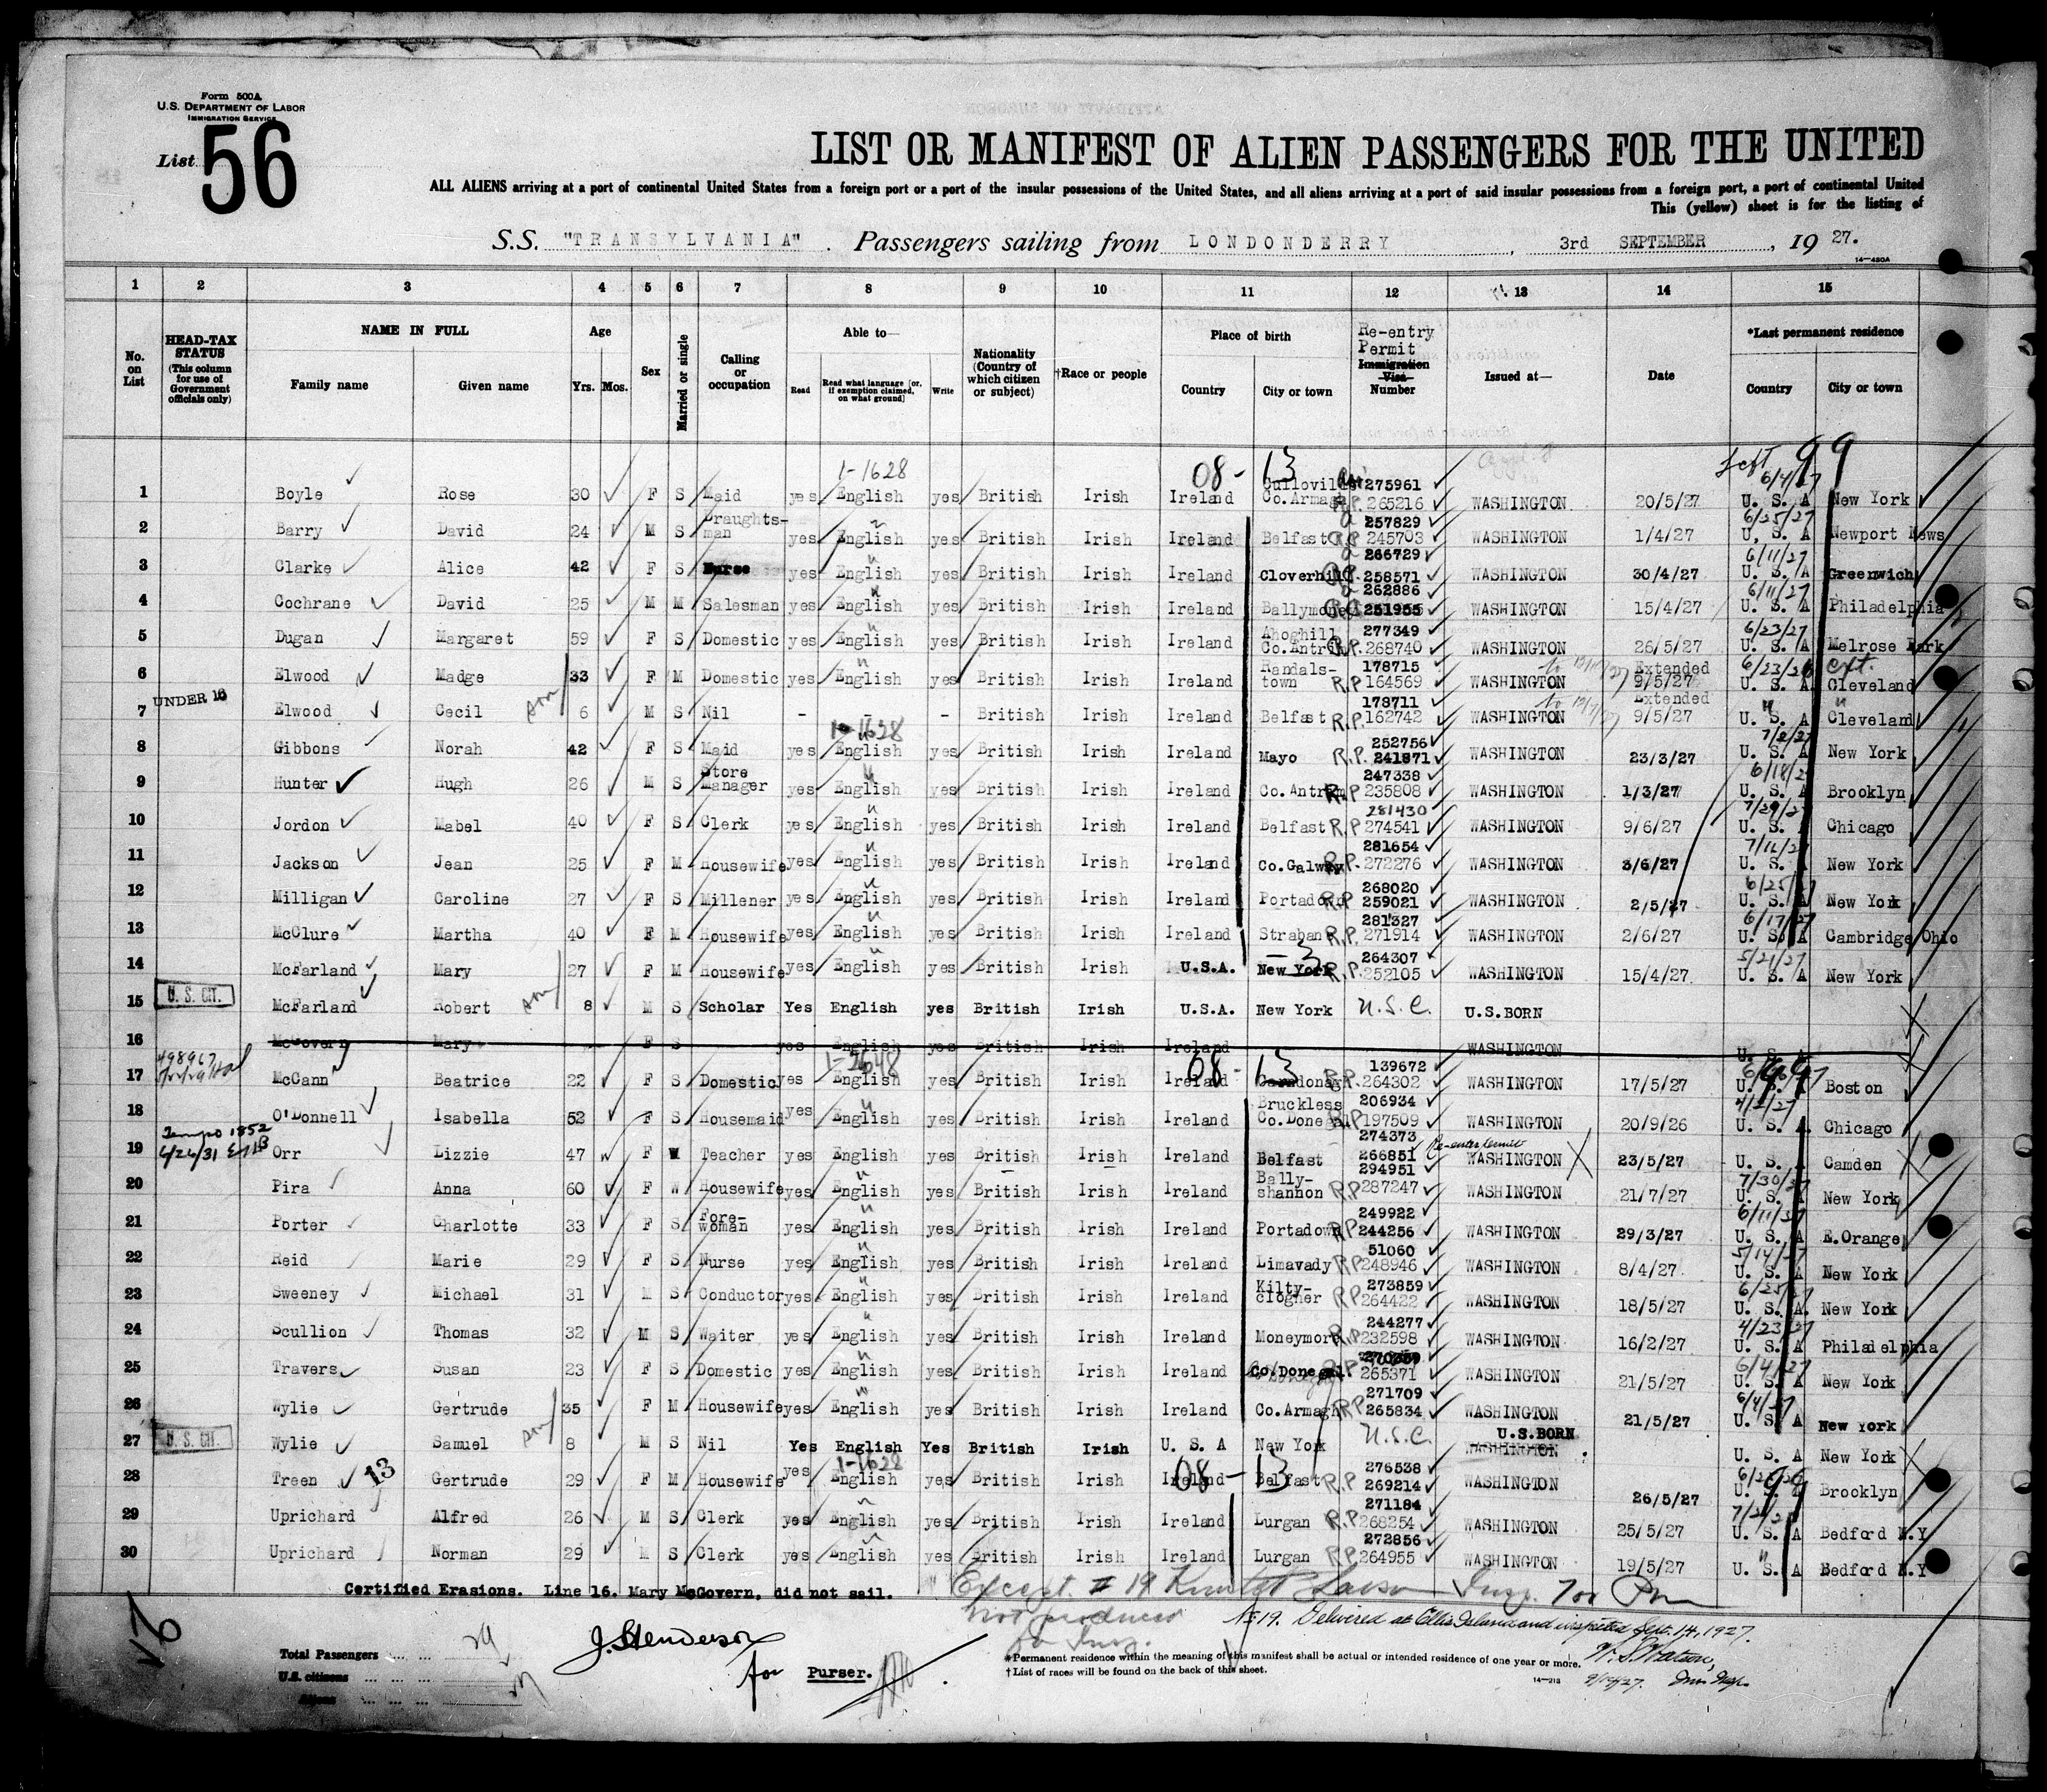 Form 500A
U.S. DEPARTMENT OF LABOR
IMMIGRATION SERVICE
List 56
LIST OR MANIFEST OF ALIEN PASSENGERS FOR THE UNITED
ALL ALIENS arriving at a port of continental United States from a foreign port or a port of the insular possessions of the United States, and all aliens arriving at a port of said insular possessions from a foreign port, a port of continental United
This (yellow) sheet is for the listing of
S.S. "TRANSYLVANIA" . Passengers sailing from LONDONDERRY , 3rd SEPTEMBER , 19 27.
14—480A
1 2 3 4 5 6 7 8 9 10 11 12 13 14 15
No. on List
HEAD-TAX STATUS (This column for use of Government officials only)
NAME IN FULL
Family name Given name
Age
Yrs. Mos.
Sex
Married or single
Calling or occupation
Able to—
Read Read what language (or, if exemption claimed, on what ground) Write
Nationality (Country of which citizen or subject)
†Race or people
Place of birth
Country City or town
Re-entry Permit
Immigration Visa Number
Issued at—
Date
*Last permanent residence
Country City or town
1-1628 08- 13 99
6/4/27
1 Boyle Rose 30 F S Maid yes English yes British Irish Ireland Culloville Co.Armagh 275961 R.P. 265216 WASHINGTON 20/5/27 U. S. A New York
6/25/27
2 Barry David 24 M S Draughts-man yes English yes British Irish Ireland Belfast 257829 R.P. 245703 WASHINGTON 1/4/27 U. S. A Newport News
6/11/27
3 Clarke Alice 42 F S Nurse yes English yes British Irish Ireland Cloverhill 266729 R.P. 258571 WASHINGTON 30/4/27 U. S. A Greenwich
6/11/27
4 Cochrane David 25 M M Salesman yes English yes British Irish Ireland Ballymoney 262886 251955 WASHINGTON 15/4/27 U. S. A Philadelphia
6/23/27
5 Dugan Margaret 59 F S Domestic yes English yes British Irish Ireland Ahoghill Co.Antrim 277349 R.P. 268740 WASHINGTON 26/5/27 U. S. A Melrose Park
6 Elwood Madge 33 F M Domestic yes English yes British Irish Ireland Randals-town 178715 R.P. 164569 WASHINGTON Extended 9/5/27 6/23/26 U. S. A Cleveland
UNDER 16
7 Elwood Cecil son 6 M S Nil - - - British Irish Ireland Belfast 178711 R.P. 162742 WASHINGTON Extended 9/5/27 U. S. A Cleveland
1-1628
7/2/27
8 Gibbons Norah 42 F S Maid yes English yes British Irish Ireland Mayo 252756 R.P. 241871 WASHINGTON 23/3/27 U. S. A New York
6/18/27
9 Hunter Hugh 26 M S Store Manager yes English yes British Irish Ireland Co.Antrim 247338 R.P. 235808 WASHINGTON 1/3/27 U. S. A Brooklyn
7/29/27
10 Jordon Mabel 40 F S Clerk yes English yes British Irish Ireland Belfast 281430 R.P. 274541 WASHINGTON 9/6/27 U. S. A Chicago
7/16/27
11 Jackson Jean 25 F M Housewife yes English yes British Irish Ireland Co.Galway 281654 R.P. 272276 WASHINGTON 3/6/27 U. S. A New York
6/25/27
12 Milligan Caroline 27 F S Millener yes English yes British Irish Ireland Portadown 268020 R.P. 259021 WASHINGTON 2/5/27 U. S. A New York
6/17/27
13 McClure Martha 40 F M Housewife yes English yes British Irish Ireland Straban 281327 R.P. 271914 WASHINGTON 2/6/27 U. S. A Cambridge Ohio
5/21/27
14 McFarland Mary 27 F M Housewife yes English yes British Irish U.S.A. New York 264307 R.P. 252105 WASHINGTON 15/4/27 U. S. A New York
U. S. CIT.
15 McFarland Robert son 8 M S Scholar Yes English yes British Irish U.S.A. New York U.S.C. U.S.BORN
16 McGovern Mary F S yes English yes British Irish Ireland WASHINGTON U. S. A
498967
08 - 13
17 McCann Beatrice 22 F S Domestic yes English yes British Irish Ireland Carndonagh 139672 R.P. 264302 WASHINGTON 17/5/27 U. S. A Boston
4/2/27
18 O'Donnell Isabella 52 F S Housemaid yes English yes British Irish Ireland Bruckless Co.Donegal 206934 R.P. 197509 WASHINGTON 20/9/26 U. S. A. Chicago
Tempo 1852
6/26/31
19 Orr Lizzie 47 F W Teacher yes English yes British Irish Ireland Belfast 274373 266851 Re-enter permit WASHINGTON 23/5/27 U. S. A Camden
7/30/27
20 Pira Anna 60 F W Housewife yes English yes British Irish Ireland Bally-shannon 294951 R.P 287247 WASHINGTON 21/7/27 U. S. A New York
6/11/27
21 Porter Charlotte 33 F S Fore-woman yes English yes British Irish Ireland Portadown 249922 R.P 244256 WASHINGTON 29/3/27 U. S. A E.Orange
5/14/27
22 Reid Marie 29 F S Nurse yes English yes British Irish Ireland Limavady 51060 R.P 248946 WASHINGTON 8/4/27 U. S. A New York
6/25/27
23 Sweeney Michael 31 M S Conductor yes English yes British Irish Ireland Kilty-clogher 273859 R.P 264422 WASHINGTON 18/5/27 U. S. A. New York
4/23/27
24 Scullion Thomas 32 M S Waiter yes English yes British Irish Ireland Moneymore 244277 R.P 232598 WASHINGTON 16/2/27 U. S. A Philadelphia
6/4/27
25 Travers Susan 23 F S Domestic yes English yes British Irish Ireland Co.Donegal R.P 265371 WASHINGTON 21/5/27 U. S. A New York
6/4/27
26 Wylie Gertrude 35 F M Housewife yes English yes British Irish Ireland Co.Armagh 271709 R.P 265834 WASHINGTON 21/5/27 U. S. A New York
U. S. CIT.
27 Wylie Samuel son 8 M S Nil Yes English Yes British Irish U. S. A New York U.S.C. U.S.BORN WASHINGTON U. S. A New York
1-1628 08 - 13
28 Treen 13 Gertrude 29 F M Housewife yes English yes British Irish Ireland Belfast 276538 R.P 269214 WASHINGTON 26/5/27 U. S. A Brooklyn
29 Uprichard Alfred 26 M S Clerk yes English yes British Irish Ireland Lurgan 271184 R.P. 268254 WASHINGTON 25/5/27 U. S. A Bedford N.Y
30 Uprichard Norman 29 M S Clerk yes English yes British Irish Ireland Lurgan 272856 R.P. 264955 WASHINGTON 19/5/27 U. S. A Bedford N.Y
Certified Erasions. Line 16. Mary McGovern, did not sail.
Except # 19
No. 19. Delivered at Ellis Island and inspected Sept. 14, 1927.
Total Passengers 29
U.S. citizens
Aliens
J. S. Henderson
for Purser.
*Permanent residence within the meaning of this manifest shall be actual or intended residence of one year or more.
†List of races will be found on the back of this sheet.
14—213